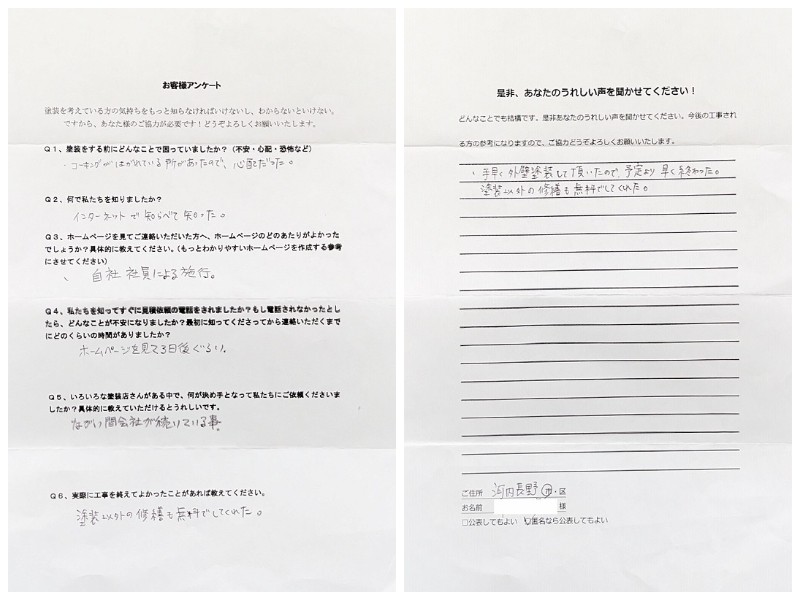 お客様アンケート
塗装を考えている方の気持ちをもっと知らなければいけないし、わからないといけない。
ですから、あなた様のご協力が必要です！どうぞよろしくお願いいたします。
Q1、塗装をする前にどんなことで困っていましたか？（不安・心配・恐怖など）
・コーキングがはがれている所があたので、心配だった。
Q2、何で私たちを知りましたか？
インターネットで知らべて知った。
Q3、ホームページを見てご連絡いただいた方へ、ホームページのどのあたりがよかった
でしょうか？具体的に教えてください。（もっとわかりやすいホームページを作成する参考
にさせてください）
、自社社員による施行。
Q4、私たちを知ってすぐに見積依頼の電話をされましたか？もし電話されなかったとし
たら、どんなことが不安になりましたか？最初に知ってくださってから連絡いただくまで
にどのくらいの時間がありましたか？
ホームページを見て3日後ぐらい。
Q5、いろいろな塗装店さんがある中で、何が決め手となって私たちにご依頼くださいま
したか？具体的に教えていただけるとうれしいです。
ながい間会社が続いている事
Q6、実際に工事を終えてよかったことがあれば教えてください。
塗装以外の修繕も無料でしてくれた。
是非、あなたのうれしい声を聞かせてください！
どんなことでも結構です。是非あなたのうれしい声を聞かせてください。今後の工事され
る方の参考になりますので、ご協力どうぞよろしくお願いいたします。
、手早く外壁塗装して頂いたので、予定より早く終わった。
塗装以外の修繕も無料でしてくれた。
ご住所 河内長野 市・区
お名前 様
□公表してもよい ☑匿名なら公表してもよい